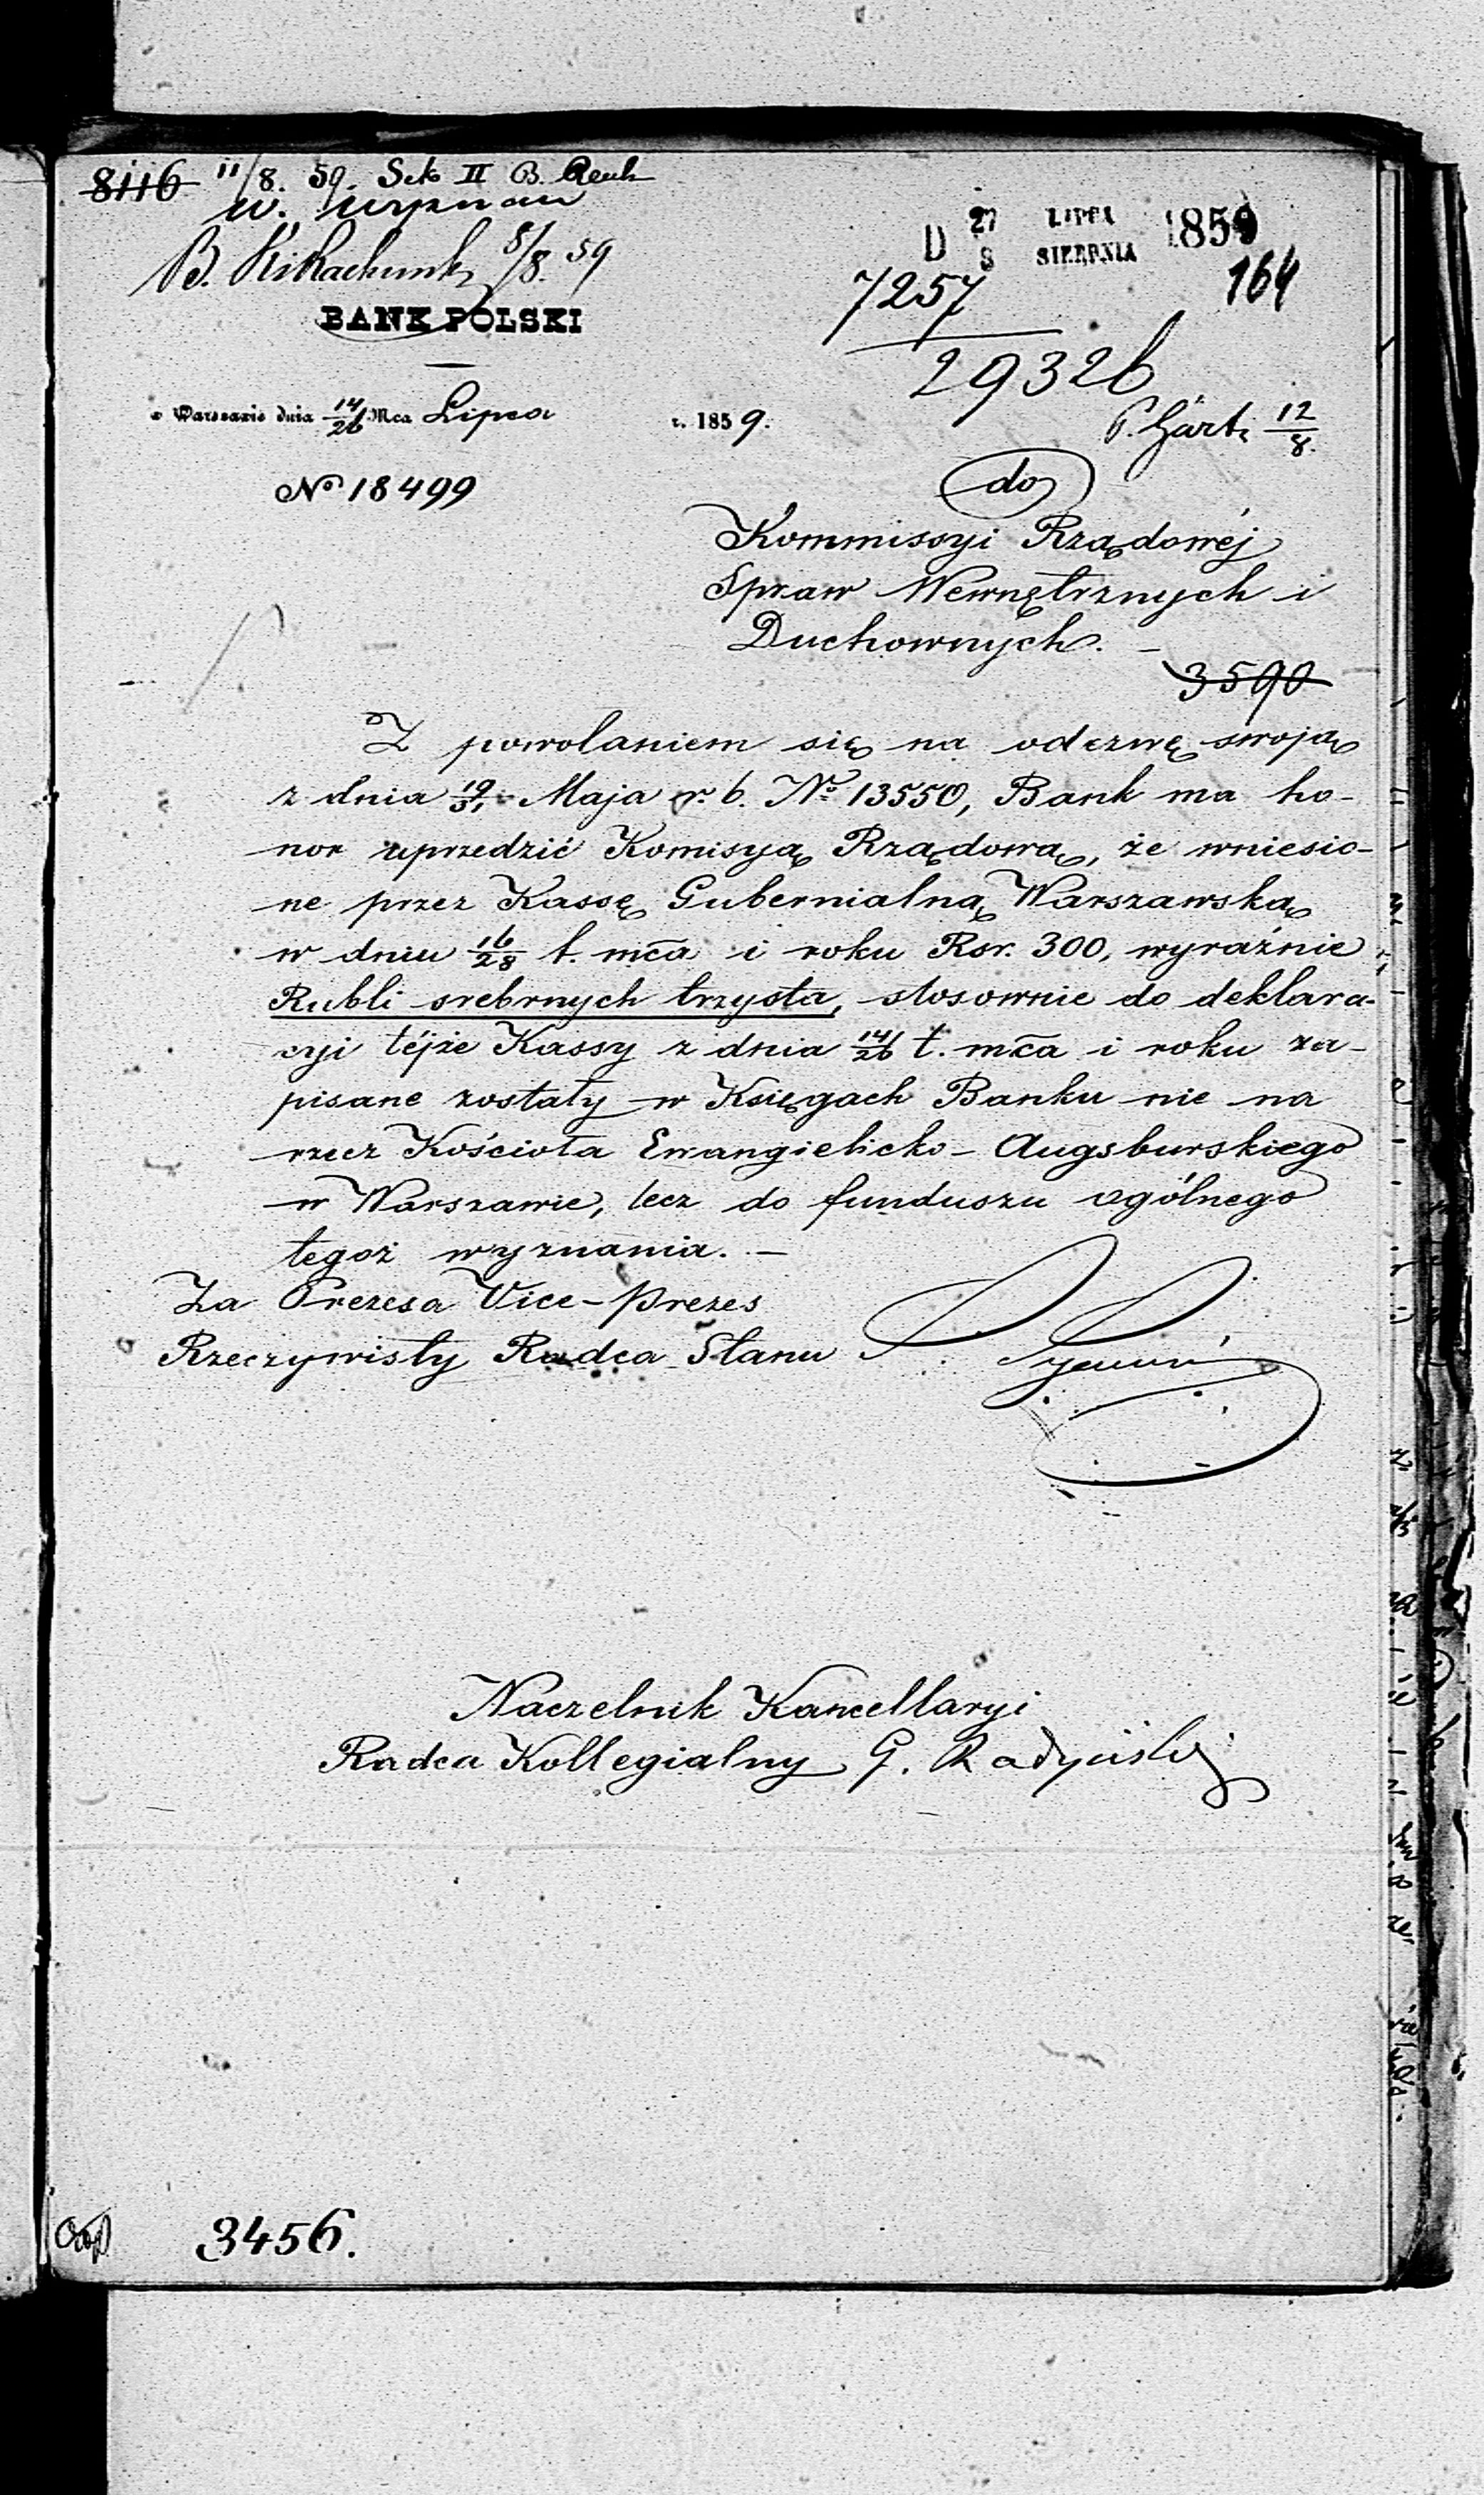 8116 11/8. 59. Sek II B.
B. 5/8. 59
D 27 LIPCA 1859
8 SIERPNIA
164
7257
29326
BANK POLSKI
w Warszawie dnia 14/26 Mca Lipca r. 1859.
12/8.
No 18499
do
Kommissyi Rządowéj
Spraw Wewnętrznych i
Duchownych. –
3590
Z powołaniem się na odezwę swoją
z dnia 19/31 Maja r. b. No 13550, Bank ma ho-
nor uprzedzić Komisyą Rządową, że wniesio-
ne przez Kassę Gubernialną Warszawską
w dniu 16/28 t. mca i roku Rsr. 300, wyraźnie
Rubli srebrnych trzysta, stosownie do deklara-
cyi téjże Kassy z dnia 14/26 t. mca i roku za-
pisane zostały w Księgach Banku nie na
rzecz Kościoła Ewangielicko-Augsburskiego
w Warszawie, lecz do funduszu ogólnego
tegoż wyznania. –
Za Prezesa Vice-Prezes
Rzeczywisty Radca Stanu
Naczelnik Kancellaryi
Radca Kollegialny G.
3456.